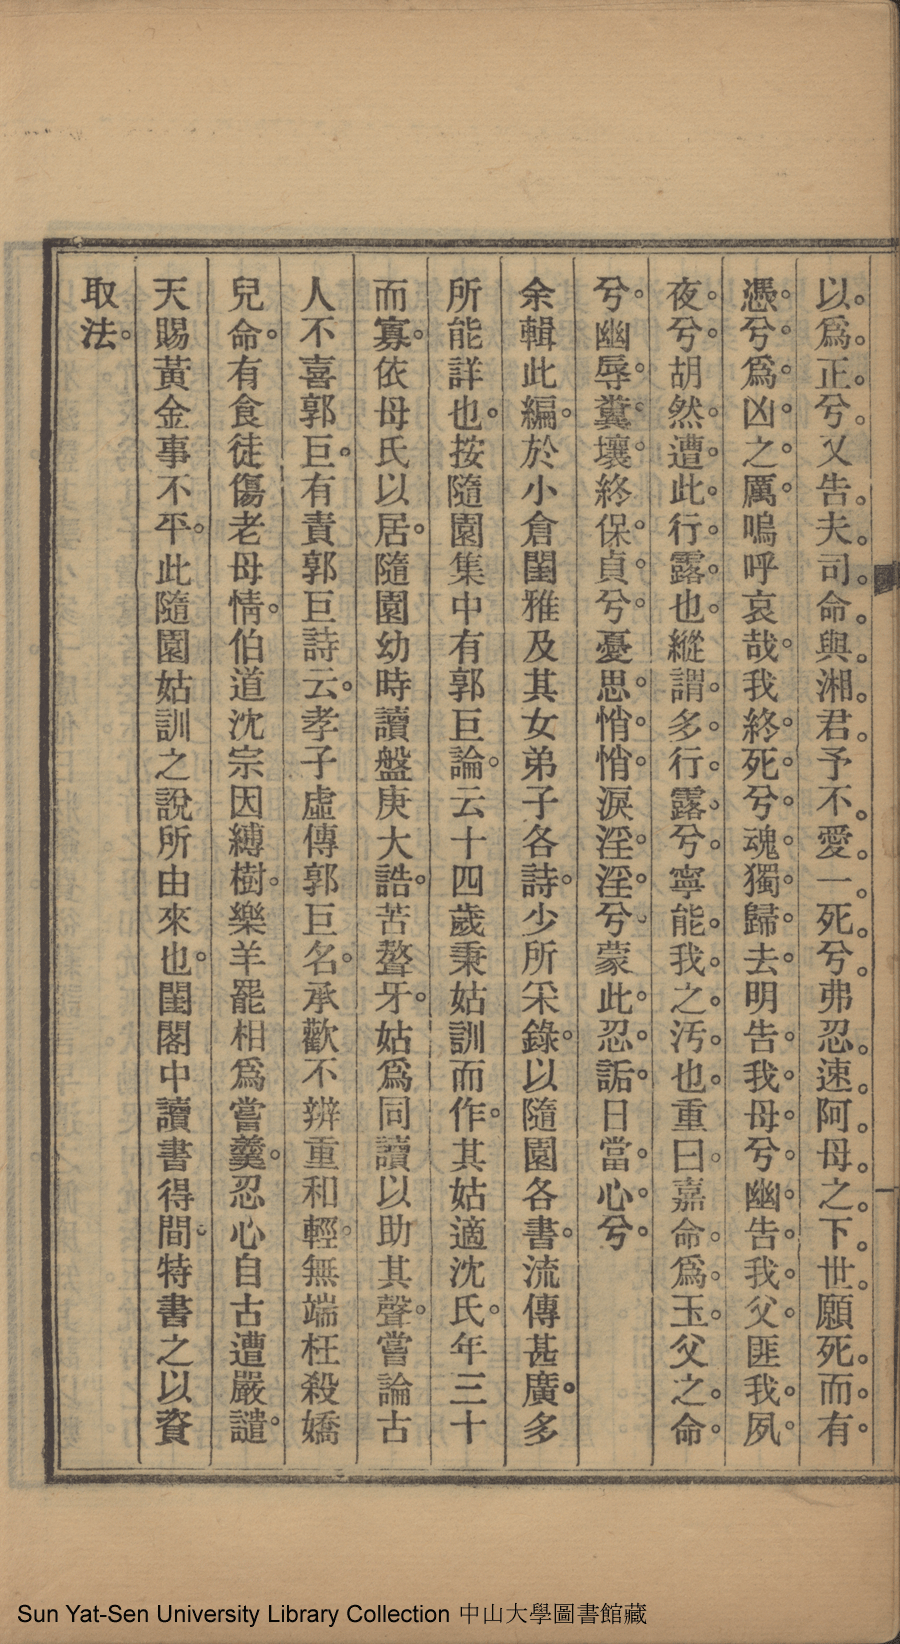 以爲正兮又告夫司命與湘君予不愛一死兮弗忍速阿母之下世願死而有
憑兮爲凶之厲嗚呼哀哉我終死兮魂獨歸去明告我母兮幽告我父匪我夙
夜兮胡然遭此行露也縱謂多行露兮寧能我之汚也重曰嘉命爲玉父之命
兮幽辱糞壤終保貞兮憂思悄悄淚淫淫兮蒙此忍詬日當心兮
余輯此編於小倉閨雅及其女弟子各詩少所采錄以隨園各書流傳甚廣多
所能詳也按隨園集中有郭巨論云十四歲秉姑訓而作其姑適沈氏年三十
而寡依母氏以居隨園幼時讀盤庚大誥苦聱牙姑爲同讀以助其聲嘗論古
人不喜郭巨有責郭巨詩云孝子虛傳郭巨名承歡不辨重和輕無端枉殺嬌
兒命有食徒傷老母情伯道沈宗因縛樹樂羊罷相爲嘗羹忍心自古遭嚴譴
天賜黃金事不平此隨園姑訓之說所由來也閨閣中讀書得間特書之以資
取法
Sun Yat-Sen University Library Collection 中山大學圖書館藏